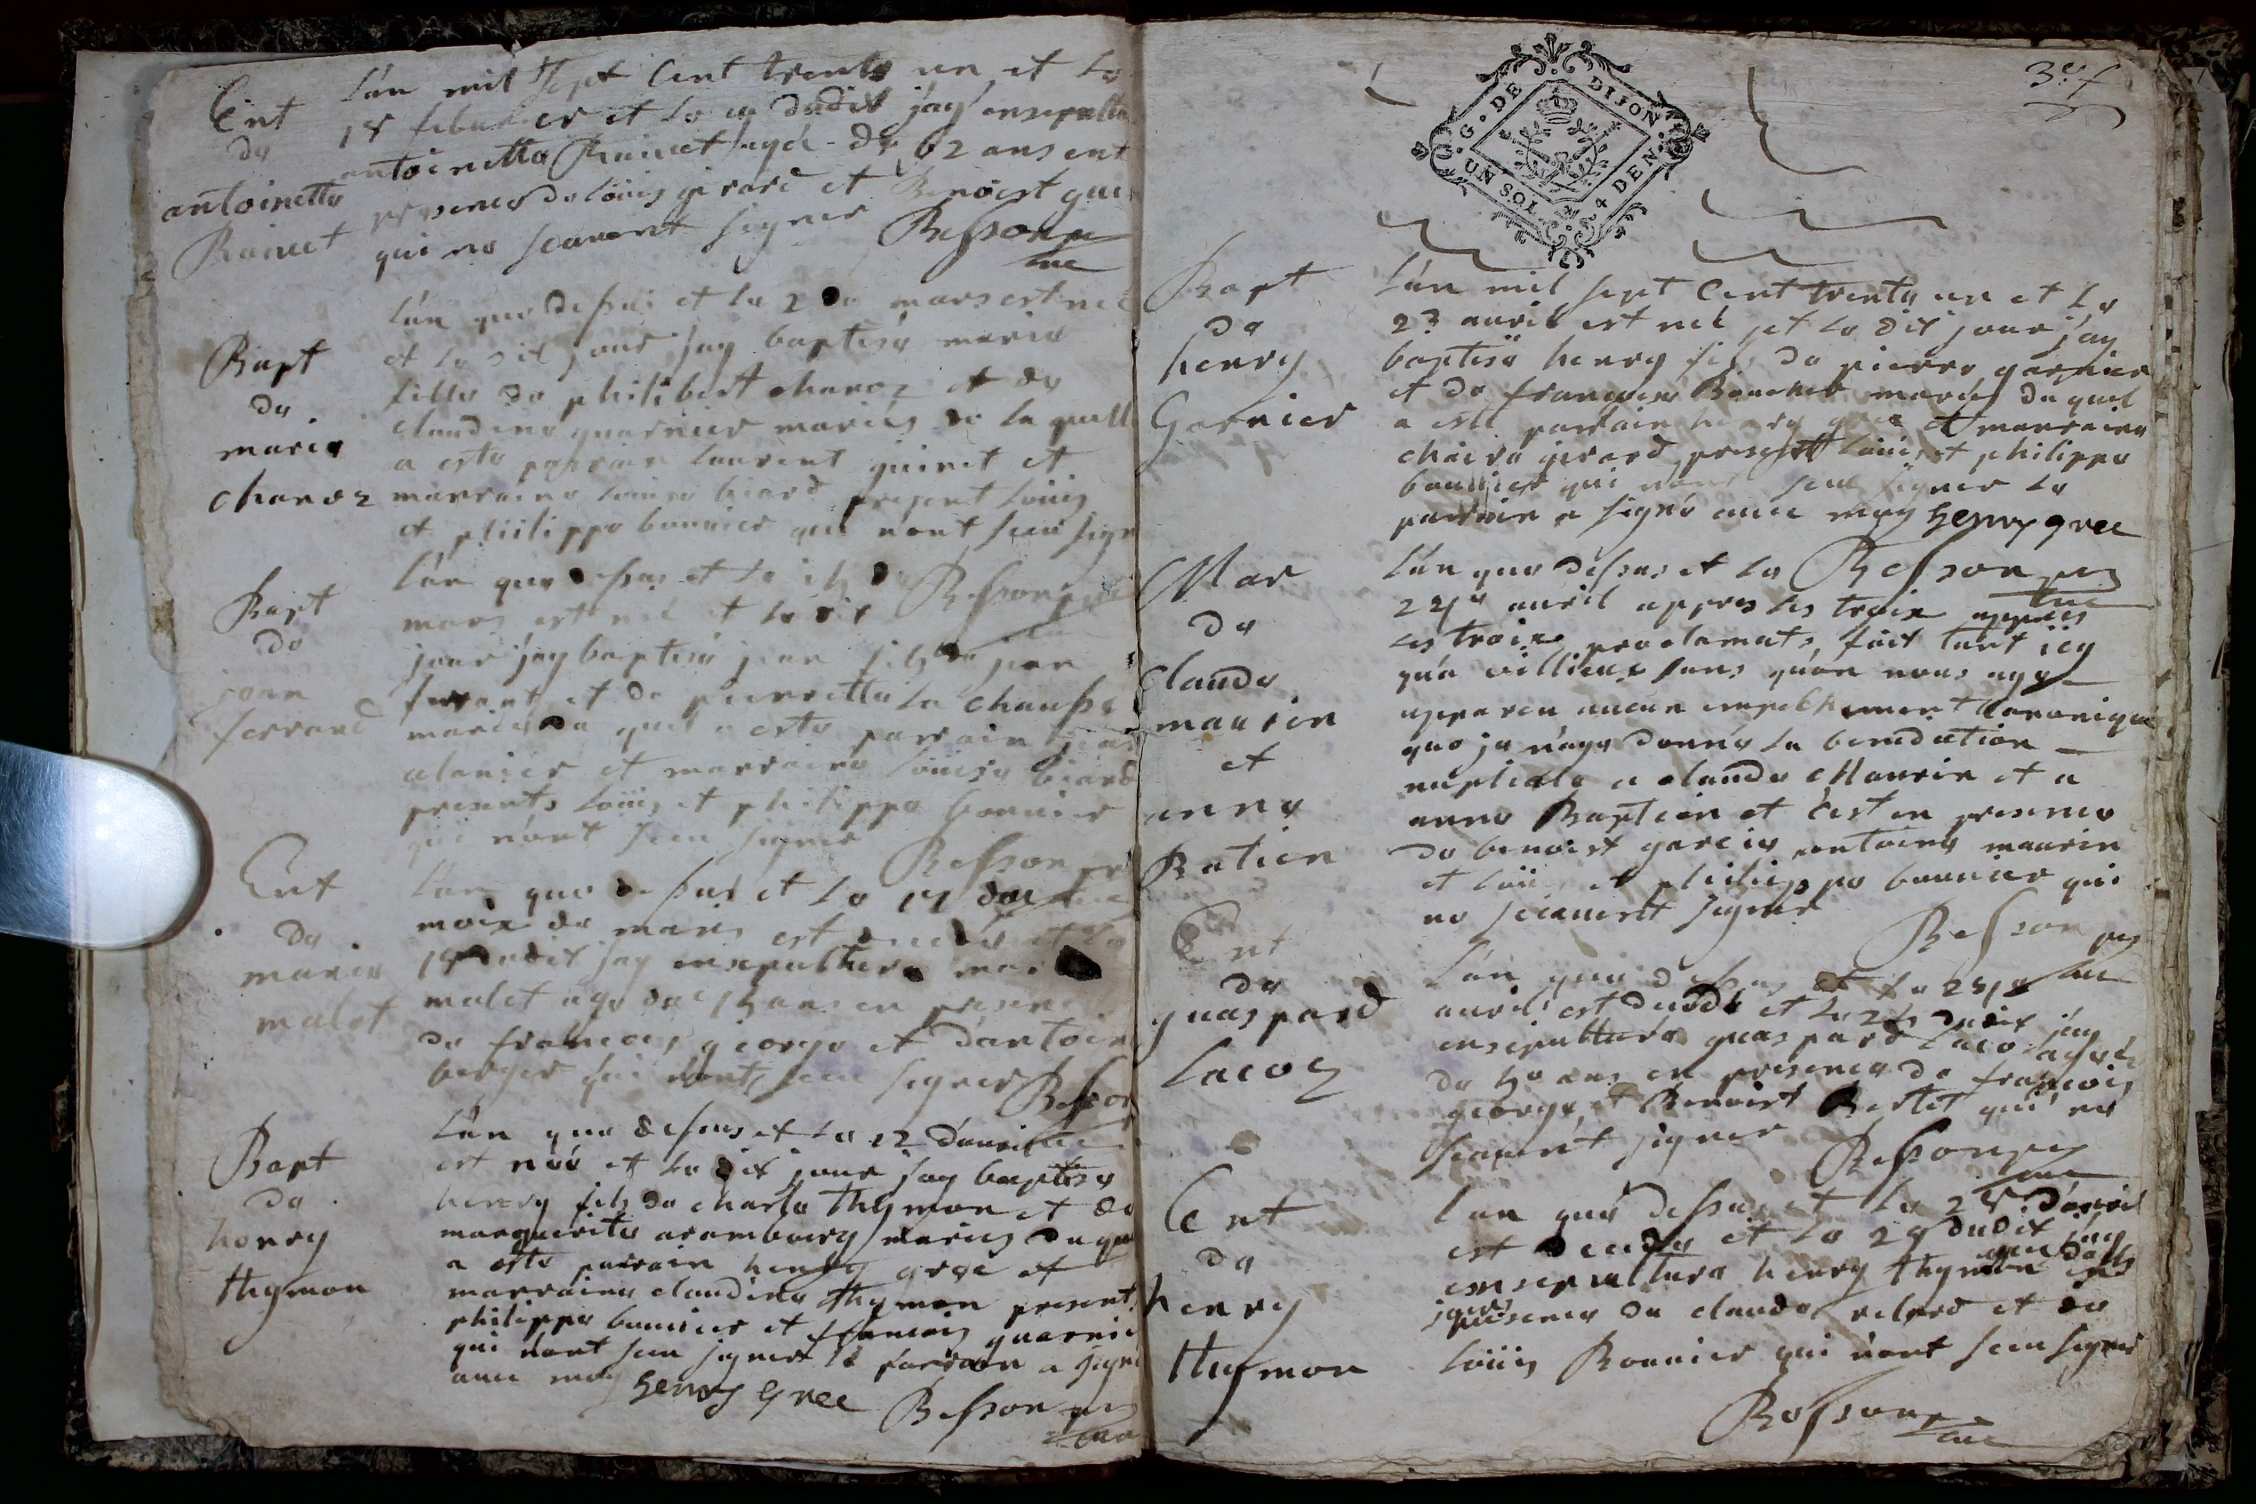 Ent
de
antoinette
Rainet
L'an mil sept Cent trente un et le
18 feburier et le 19 dudit j'ay ensepulture
antoinette Rainet agée de 62 ans en
presence de loüis girard et Benoist
qui ne scauent signer Besson
cure
Bapt
de
marie
charoz
L'an que dessus et le 2 de mars est née
et le dit jour jay baptisé marie
fille de philibert charoz et de
claudine guarnier mariés de la quelle
a esté parrain laurent guinet et
marraine louise biard present loüis
et philippe bonnier qui nont sceu signer
Bapt
de
jean
ferrand
L'an que dessus et le
mars est né et le dit Besson
jour j'ay baptisé jean fils de jean
ferrant et de pierrette la chausse
mariés du quel a esté parrain jean
et marraine loüise biard
presents loüis et philippe bonnier
qui n'ont sceu signer
Besson
Ent
de
marie
malet
L'an que dessus et le 17 du
mois de mars est decedé et le
18 dudit jay ensepulturé
malet agé de ans en presence
de francois george et d'antoine
berger qui n'ont sceu signer Besson
Bapt
de
henry
thymon
L'an que dessus et le 12 d'auril
est née et le dit jour jay baptisé
henry fils de charle thymon et de
marguerite arambourg mariés du quel
a esté parrain henry gree et
marraine claudine thymon present
philippe bonnier et francois guarnier
qui n'ont sceu signer le parrain a signé
auec moy henry gree Besson
cure
3e f
G. G. DE DIJON
UN SOL 4 DEN.
Bapt
de
henry
Garnier
L'an mil sept Cent trente un et le
23 auril est né et le dit jour j'ay
baptisé henry fils de pierre garnier
et de francoise mariés du quel
a esté parrain henry gree et marraine
claire girard present loüis et philippe
bonnier qui nont sceu signer le
parrain a signé auec moy henry gree
Mar
de
claude
maurin
et
anne
Batien
L'an que dessus et le Besson
24e auril appres les trois appres
les trois proclamats, fait tant icy
qu'a villieux sans qu'on nous aye
appareu aucun empechement canonique
que je n'aye donné la benediction
nuptiale a claude Maurin et a
anne Baptien et c'est en presence
de benoist garcin antoine maurin
et loüis et philippe bonnier qui
ne scauent signer
Besson
cure
Ent
de
guaspard
Lacoz
L'an que dessus et le 24e
auril est decedé et le 25 dudit j'ay
ensepulturé guaspard Lacoz agé
de 50 ans en presence de francois
george et Benoist Berlet qui ne
scauent signer
Besson
cure
Ent
de
henry
thymon
L'an que dessus et le 28 d'auril
est decedé et le 29 dudit j'ay
ensepulturé henry thymon
jours
presence de claude et de
loüis Bonnier qui n'ont sceu signer
Besson
cure